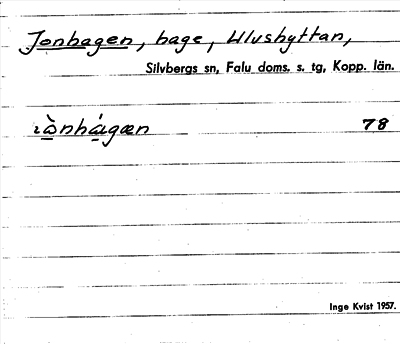 Jonhagen, hage, Ulvshyttan,
Silvbergs sn, Falu doms. s. tg, Kopp. län.
78
Inge Kvist 1957.